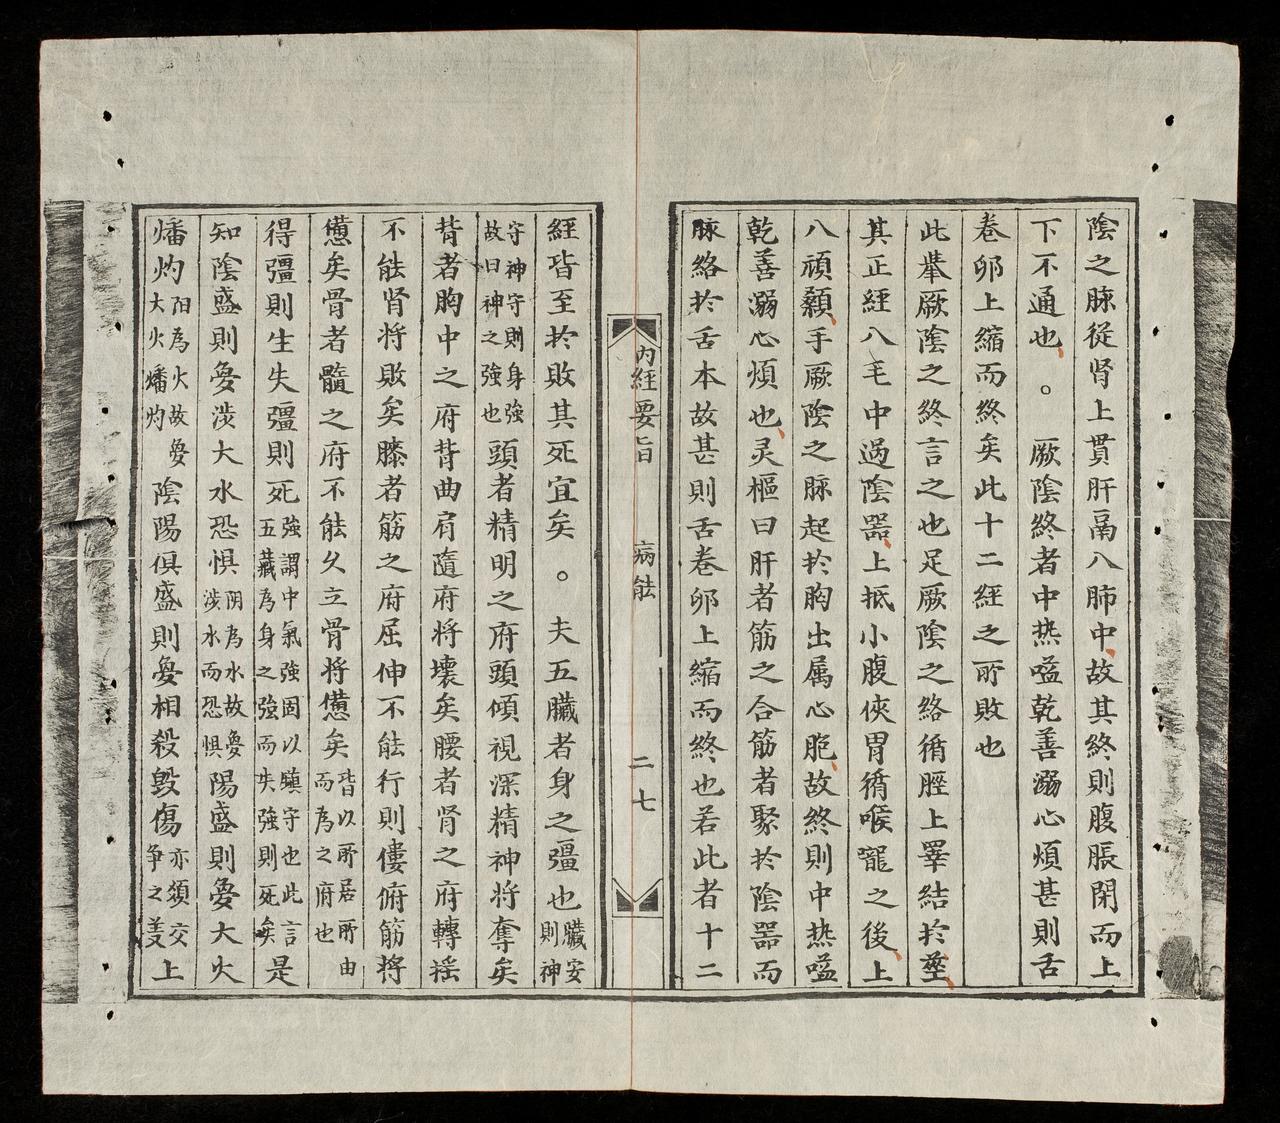 陰之脉從肾上貫肝鬲入肺中故其終則腹脹閉而上
下不通也。厥陰終者中热嗌乾善溺心煩甚則舌
卷卵上縮而終矣此十二經之所敗也
此舉厥陰之終言之也足厥陰之絡循脛上睪結於莖
其正經入毛中過陰器上抵小腹俠胃循喉嚨之後上
入頏顙手厥陰之脉起於胸出属心胞故終則中热嗌
乾善溺心煩也灵樞曰肝者筋之合筋者聚於陰器而
脉絡於舌本故甚則舌卷卵上縮而終也若此者十二
内經要旨 病能 二七
經皆至於敗其死宜矣。夫五臟者身之彊也臟安則神
守神守則身強故曰神之強也頭者精明之府頭傾視深精神將奪矣
背者胸中之府背曲肩隨府將壞矣腰者肾之府轉搖
不能肾將敗矣膝者筋之府屈伸不能行則僂俯筋將
憊矣骨者髓之府不能久立骨將憊矣皆以所居所由而為之府也
得彊則生失彊則死強謂中氣強固以鎮守也此言五藏為身之強而失強則死矣是
知陰盛則夢涉大水恐惧阴為水故夢涉水而恐惧陽盛則夢大火
燔灼阳為火故夢大火燔灼陰陽俱盛則夢相殺毁傷亦類交争之義上